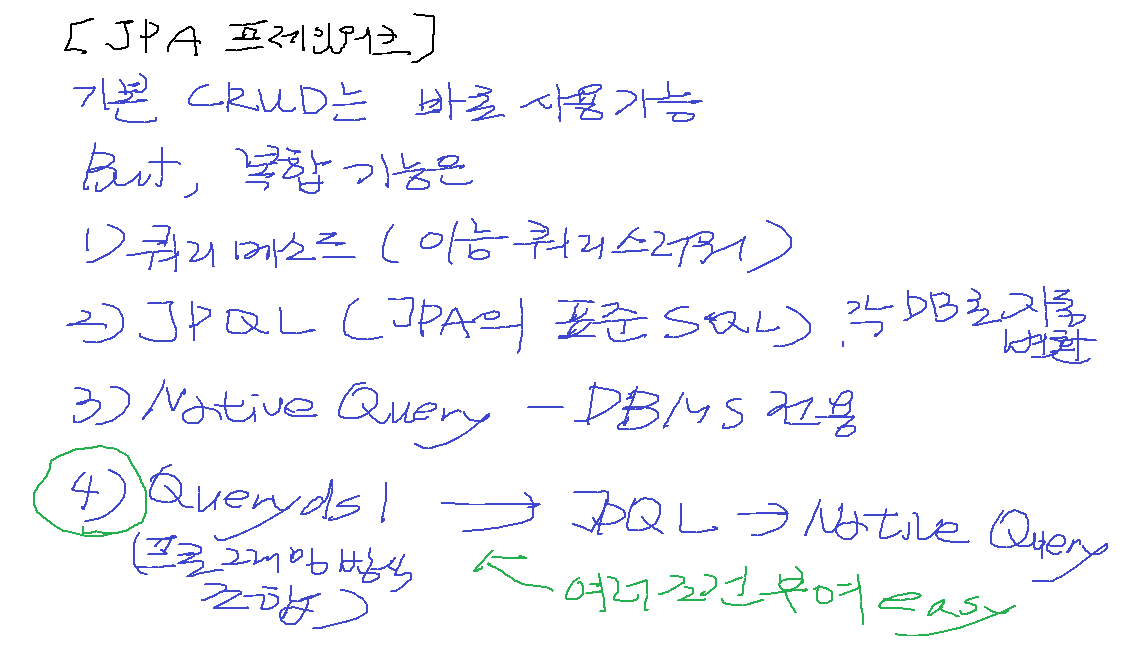 [JPA 프레임워크]
기본 CRUD는 바로 사용가능
But, 복합 기능은
1) 쿼리 메소드 (이능 쿼리스러워)
2) JPQL (JPA의 표준 SQL) 각 DB로 자동
변환
3) Native Query - DBMS 전용
4) Querydsl → JPQL → Native Query
(프로그래밍 방식
조합)
← 여러 조건 부여 easy